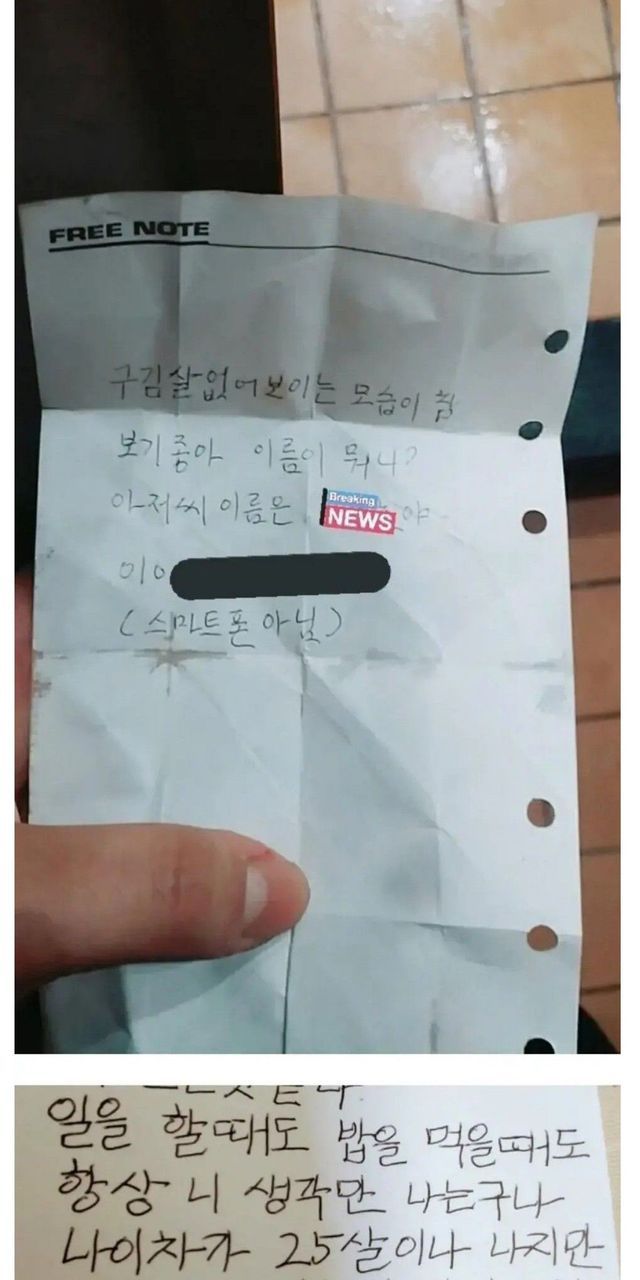 FREE NOTE
구김살없어보이는 모습이 참
보기좋아 이름이 뭐니?
아저씨 이름은 야
Breaking
NEWS
010
(스마트폰 아님)
일을 할때도 밥을 먹을때도
항상 니 생각만 나는구나
나이차가 25살이나 나지만